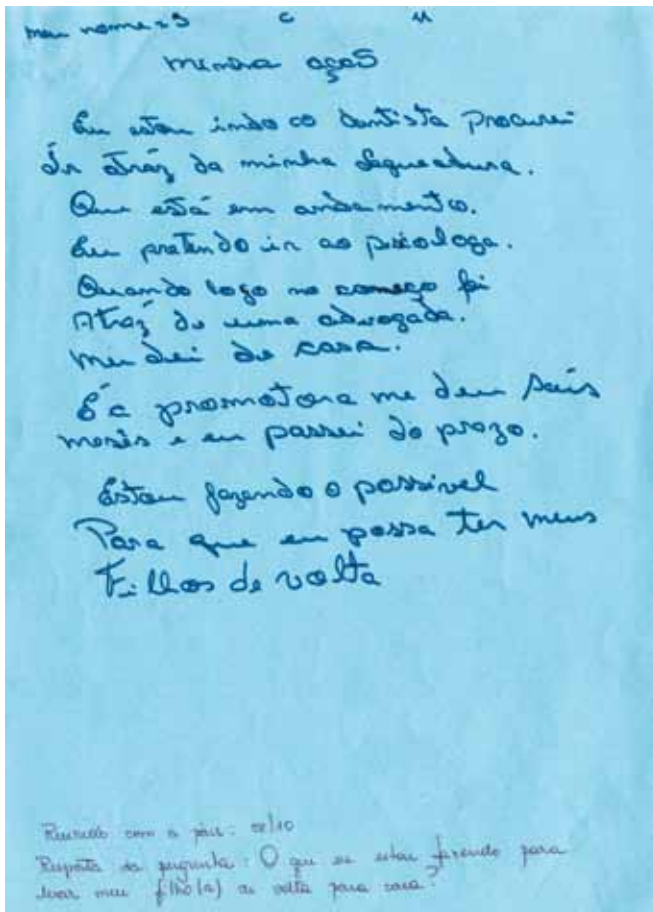 meu nome = S C M
minha ações
Eu estou indo ao dentista procurei
Ir atráz da minha laqueadura.
Que está em andamento.
Eu pretendo ir ao psicologa.
Quando logo no começo fui
Atraz de uma advogada.
Mudei de casa.
E a promotora me deu seis
mesês e eu passei do prazo.
Estou fazendo o possivel
Para que eu possa ter meus
Filhos de volta
com a pais: 02/10
Resposta da pergunta: O que eu estou fazendo para
levar meu filho(a) de volta para casa?